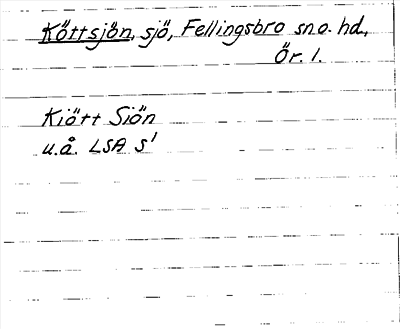 Köttsjön, sjö, Fellingsbro sn o. hd,
Ör. l.
Kiött Siön
u.å. LSA S1